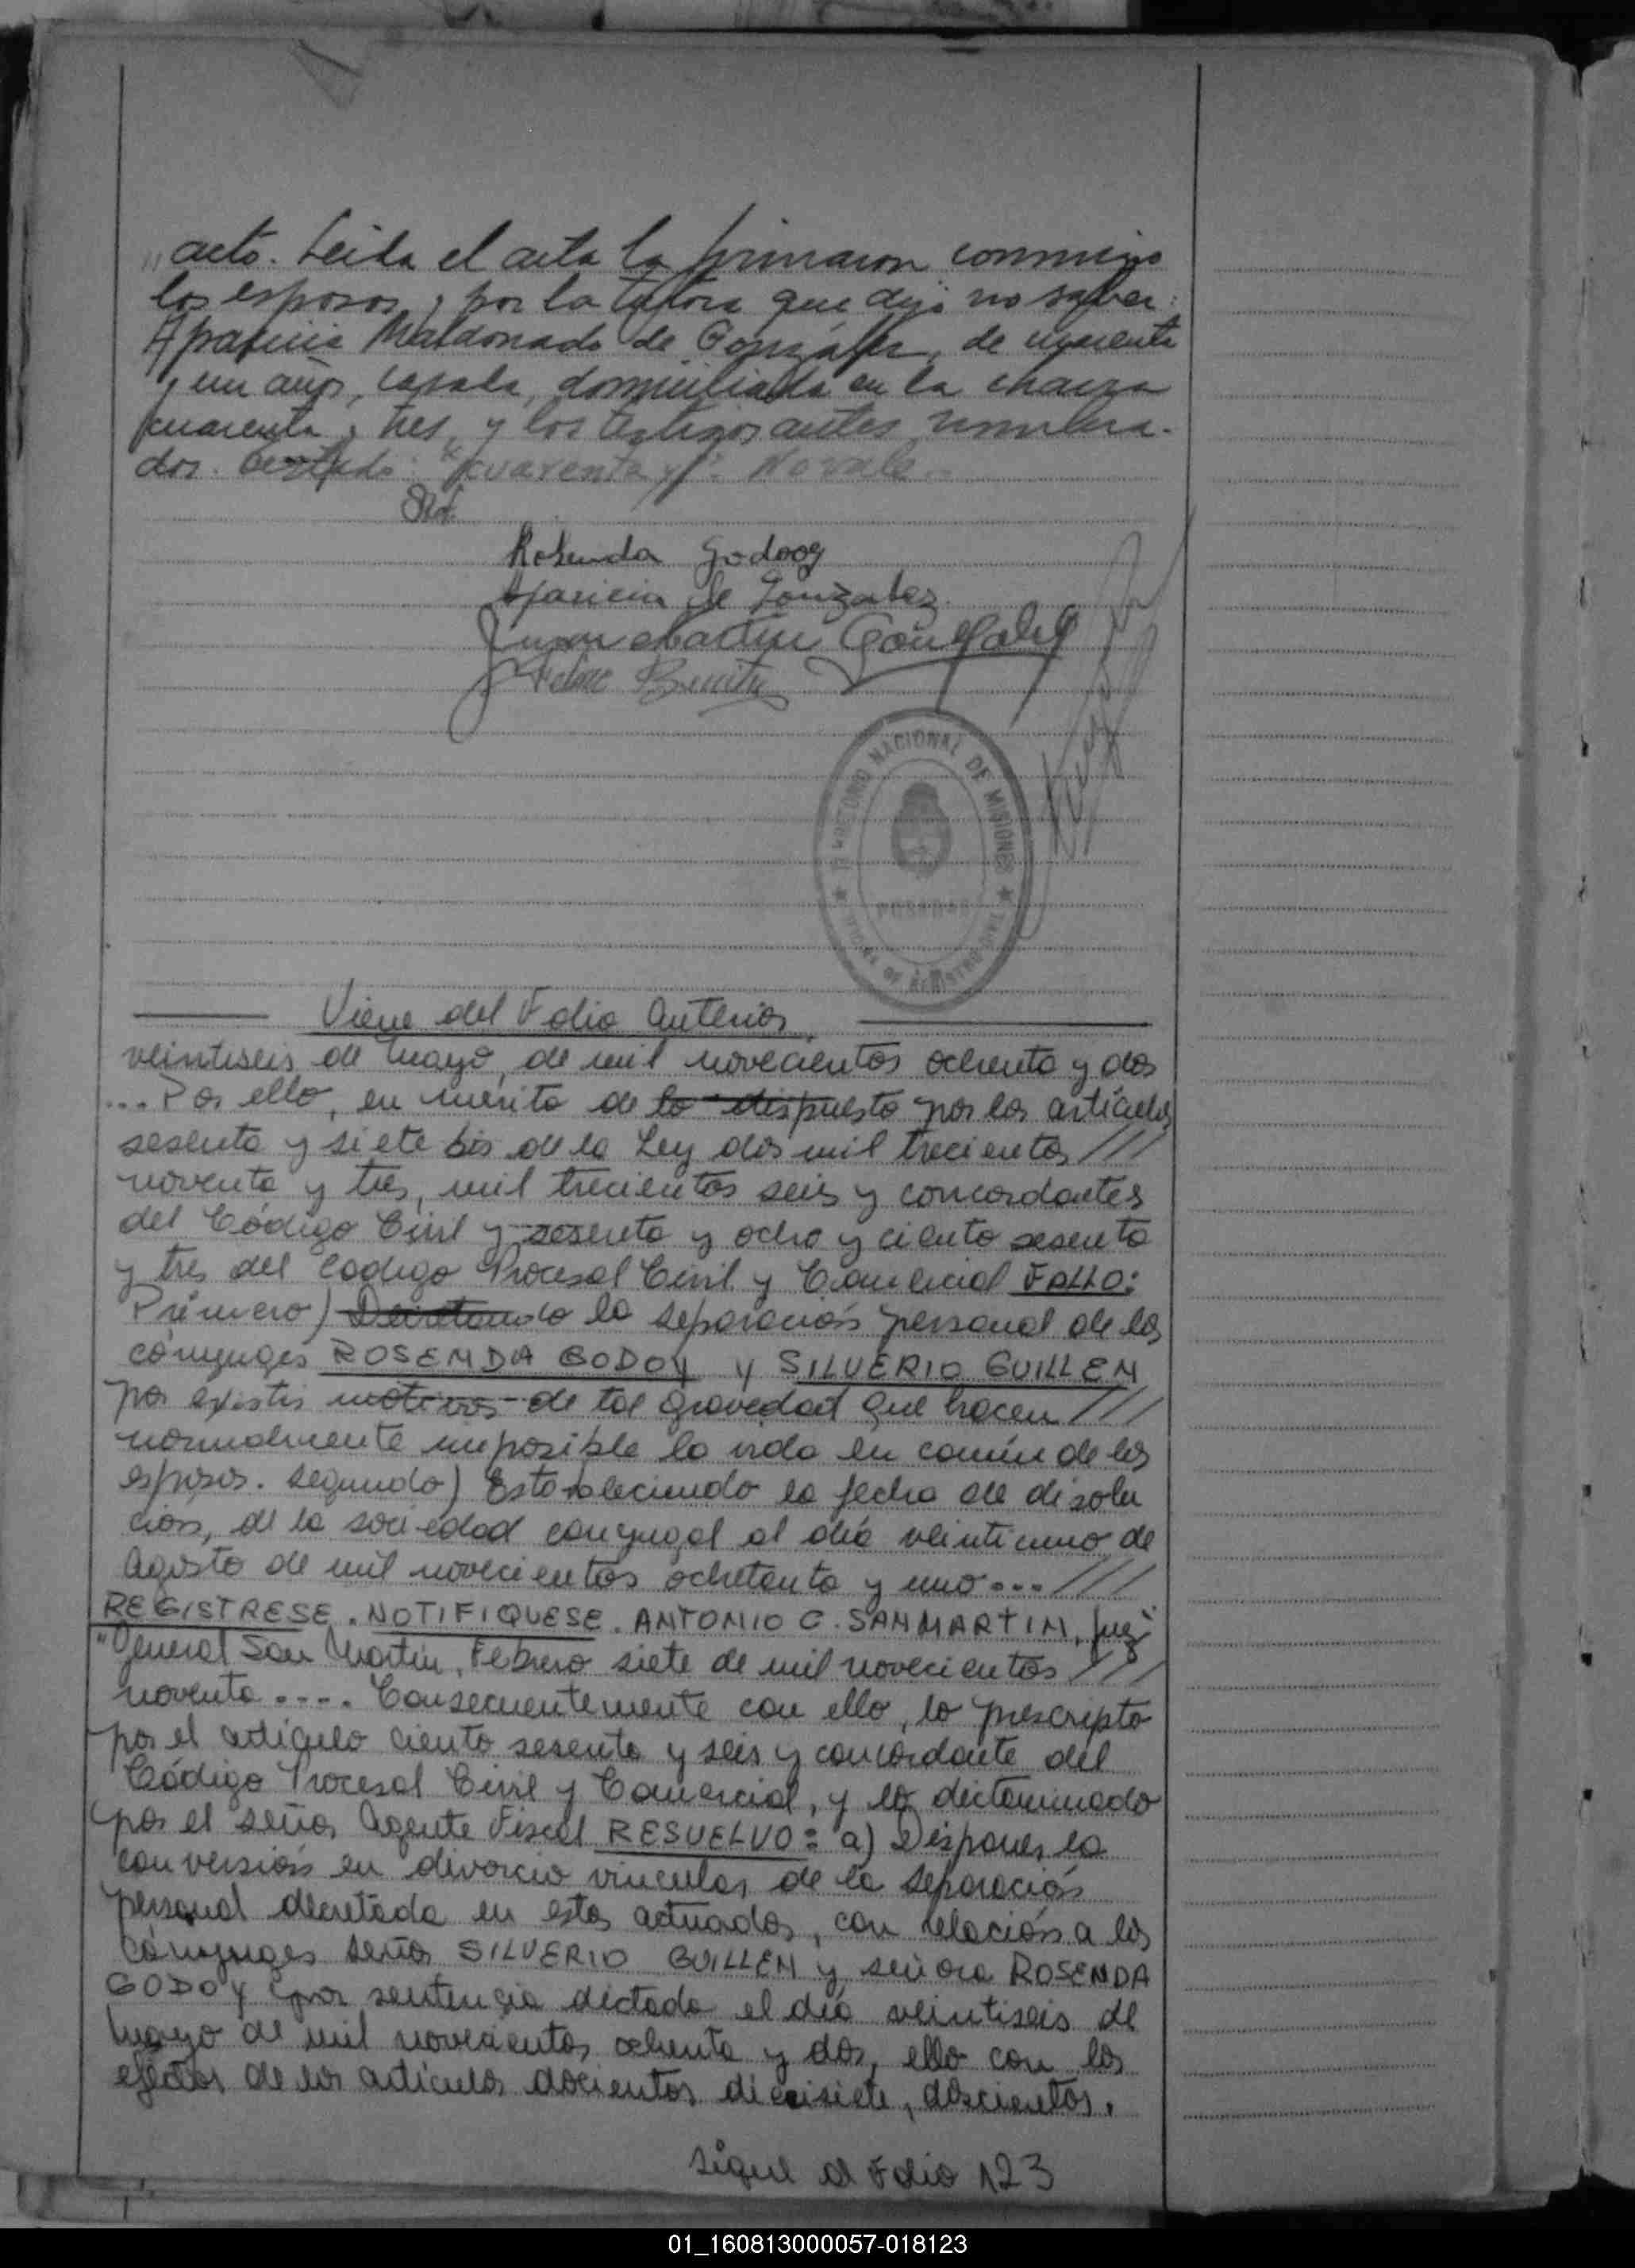 acto. Leida el acta la firmaron conmigo
los esposos, por la tutora que dijo no saber:
Aparicia Maldonado de González, de cuarenta
y un años, casada, domiciliada en la chacra
cuarenta y tres, y los testigos antes nombra-
dos. Testado: "cuarenta y": No vale.
Rosenda Godooy
Aparicia de Gonzalez
Juan Martin Gonzalez
Benitez
TERRITORIO NACIONAL DE MISIONES
POSADAS
Viene del Folio Anterior
veintiseis de mayo, de mil novecientos ochenta y dos
... Por ello, en merito de lo dispuesto por los artículos
sesenta y siete bis de la Ley dos mil trecientos ///
noventa y tres, mil trecientos seis y concordantes
del Código Civil y sesenta y ocho y ciento sesenta
y tres del Codigo Procesal Civil y Comercial FALLO:
Primero) Decretando la separación personal de los
cónyuges ROSENDA GODOY Y SILVERIO GUILLEN
por existir motivos de tal gravedad que hacen ///
normalmente imposible la vida en común de los
esposos. Segundo) Estableciendo la fecha de disolu
ción, de la sociedad conyugal al día veintiuno de
Agosto de mil novecientos ochetanta y uno... ///
REGISTRESE. NOTIFIQUESE. ANTONIO C. SANMARTIN, Juez
"General San Martin, Febrero siete de mil novecientos ///
noventa .... Consecuentemente con ello, lo prescripto
por el artículo ciento sesenta y seis y concordante del
Código Procesal Civil y Comercial, y lo dictaminado
por el señor Agente Fiscal RESUELVO: a) Disponer la
conversión en divorcio vincular de la separación
personal decretada en estos actuados, con relación a los
cónyuges señor SILVERIO GUILLEN y señora ROSENDA
GODOY por sentencia dictada el día veintiseis de
mayo de mil novecientos ochenta y dos, ello con los
efectos de los artículos docientos diecisiete, doscientos.
Sigue al Folio 123
01_160813000057-018123